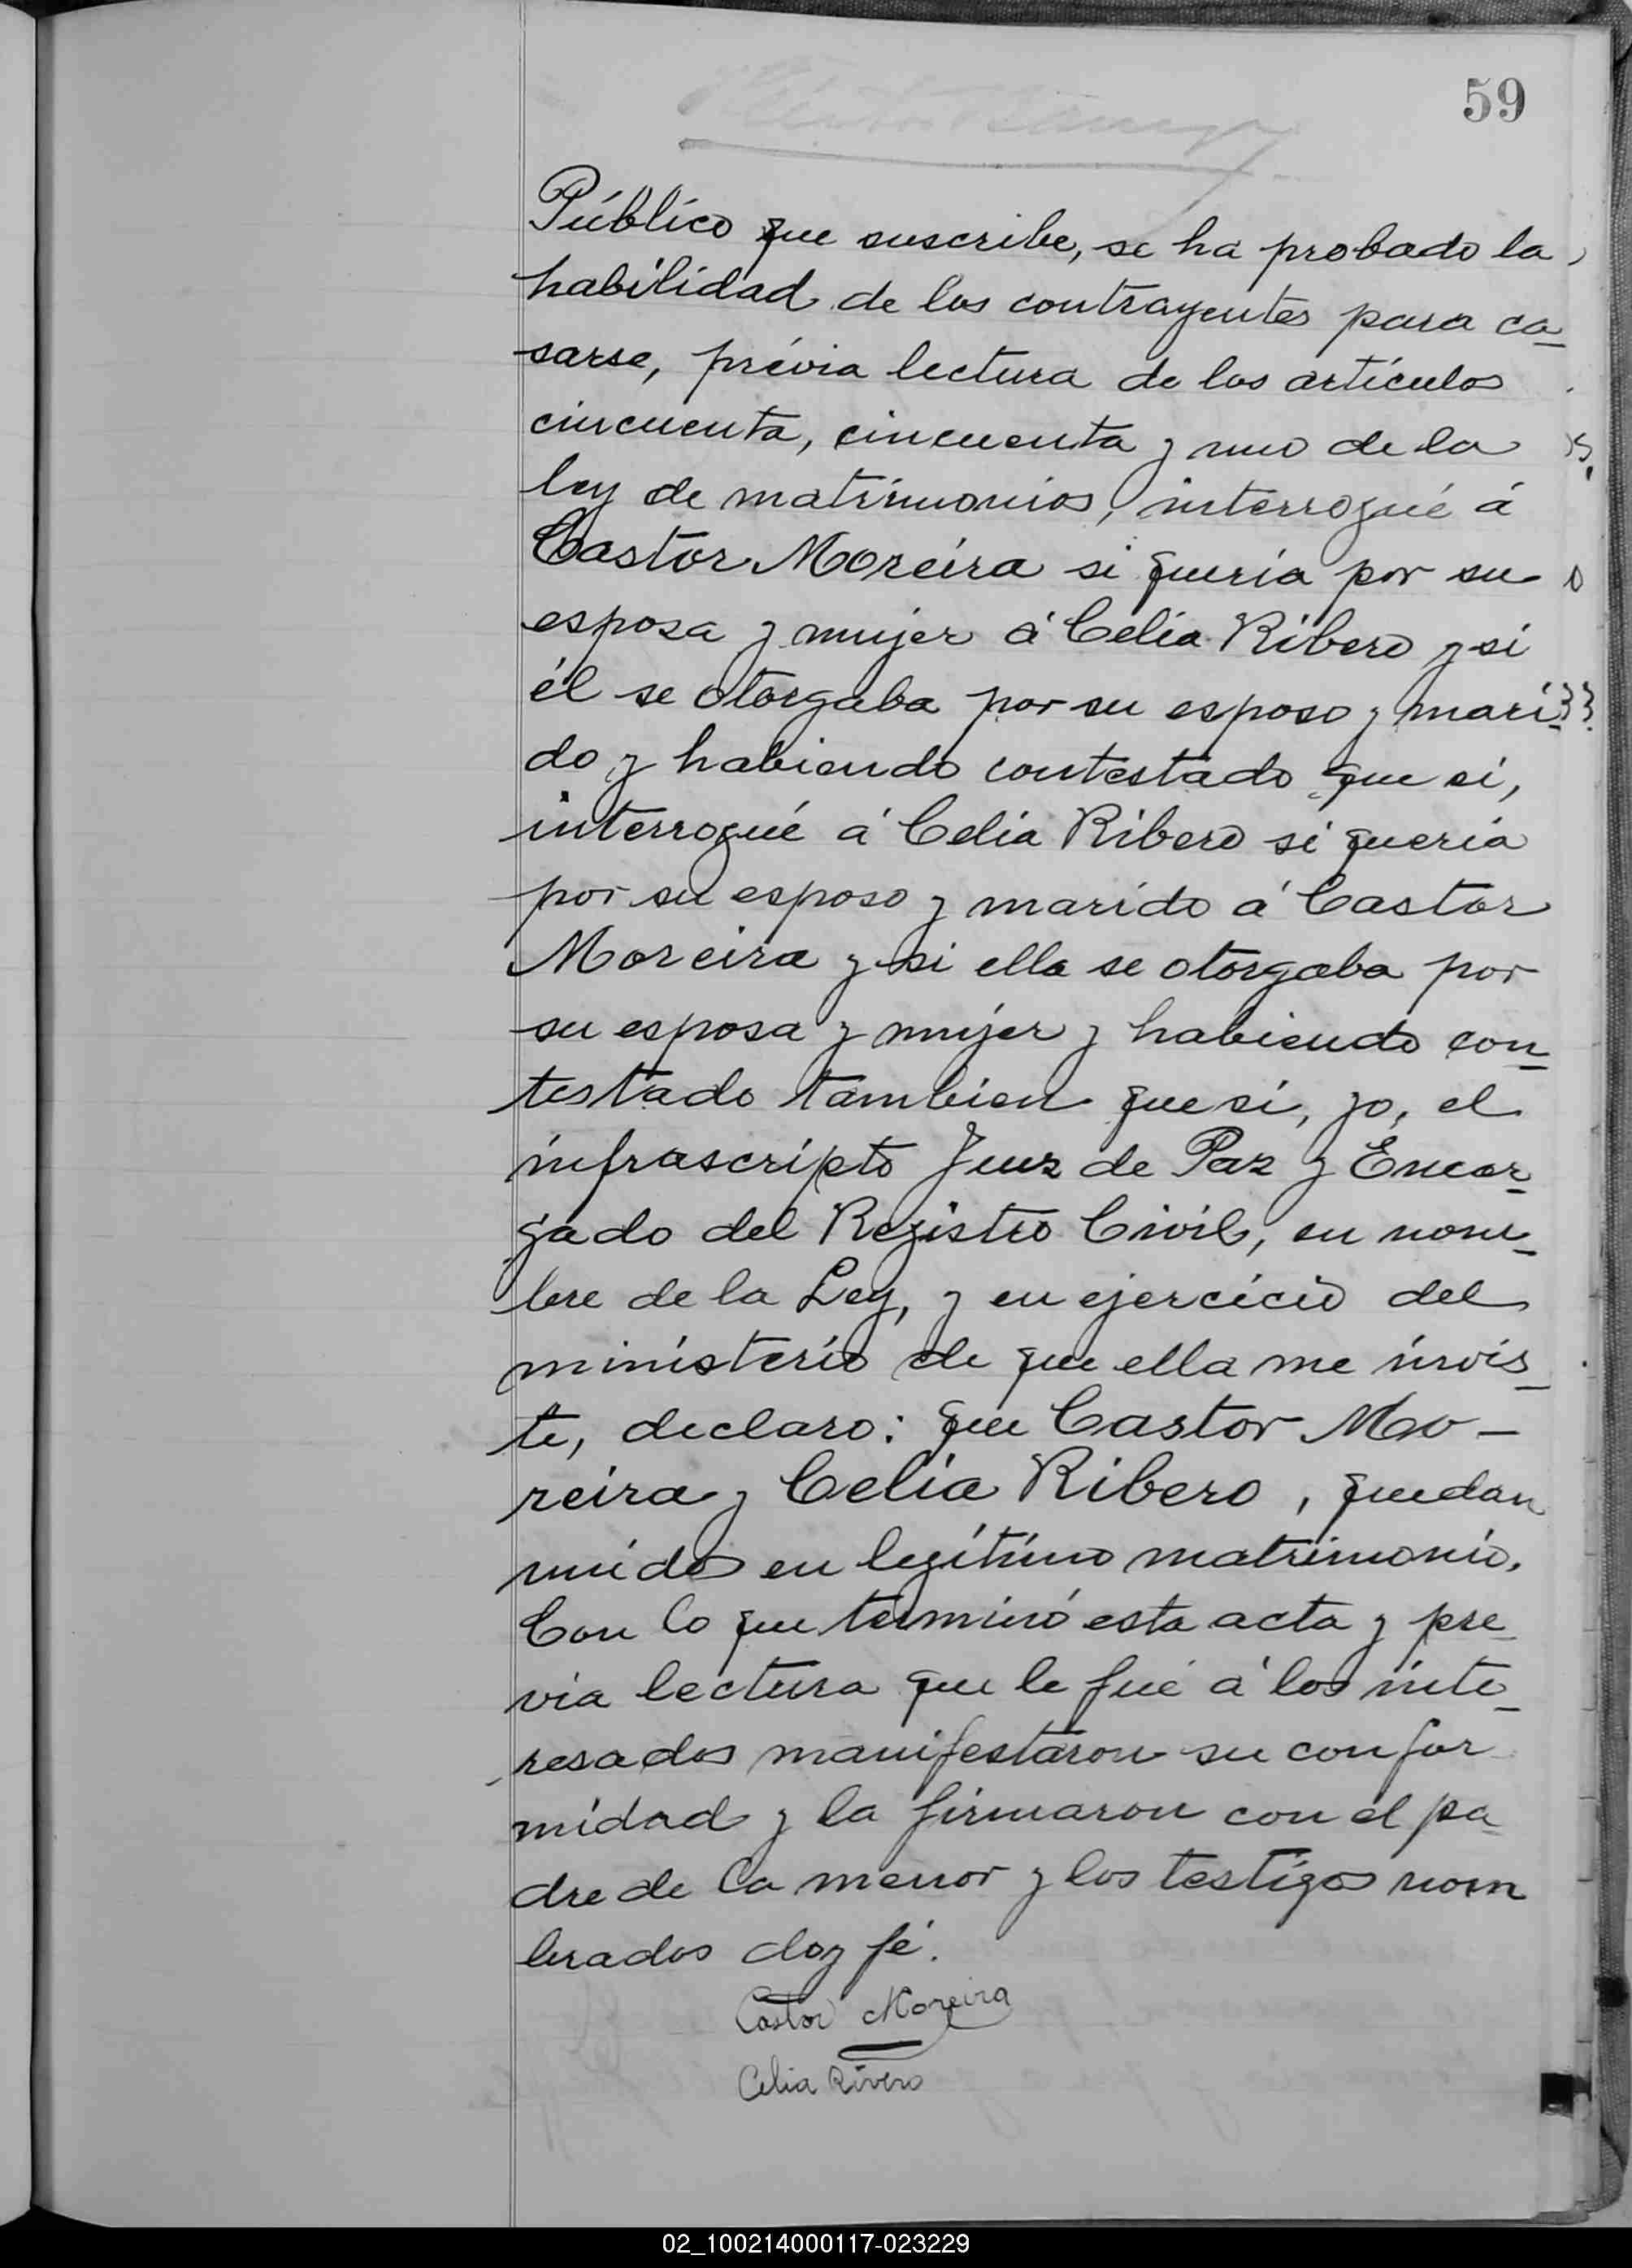 59
Público que suscribe, se ha probado la
habilidad de los contrayentes para ca-
sarse, prévia lectura de los artículos
cincuenta, cincuenta y uno de la
ley de matrimonios, interrogué á
Castor Moreira si queria por su
esposa y mujer á Celia Ribero y si
él se otorgaba por su esposo y mari-
do y habiendo contestado que si,
interrogué á Celia Ribero si queria
por su esposo y marido á Castor
Moreira y si ella se otorgaba por
su esposa y mujer y habiendo con-
testado tambien que si, yo, el
infrascripto Juez de Paz y Encar-
gado del Registro Civil, en nom-
bre de la Ley, y en ejercicio del
ministerio de que ella me invis-
te, declaro: que Castor Mo-
reira y Celia Ribero, quedan
unidos en legítimo matrimonio.
Con lo que terminó esta acta y pre-
via lectura que le fué á los inte-
resados manifestaron su confor-
midad y la firmaron con el pa-
dre de la menor y los testigos nom
brados doy fé.
Castor Moreira
Celia Rivero
02_100214000117-023229